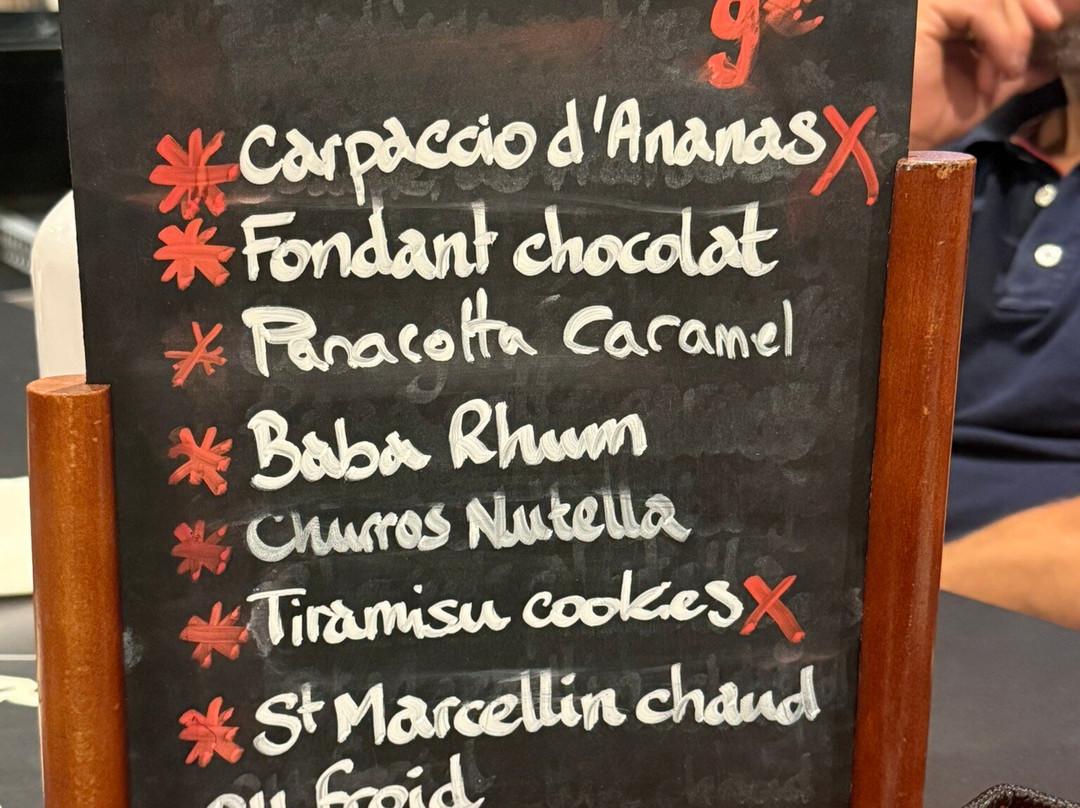 9€
Carpaccio d'Ananas X
Fondant chocolat
Panacotta Caramel
Baba Rhum
Churros Nutella
Tiramisu cookies X
St Marcellin chaud
ou froid